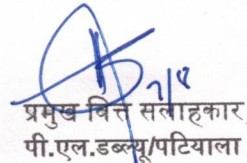 प्रमुख वित्त सलाहकार
पी.एल.डब्ल्यू/पटियाला